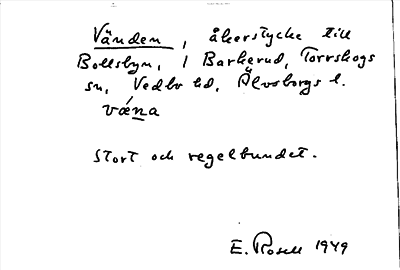 Vänden, åkerstycke till
Bollsbyn, / Barkerud, Torrskogs
sn, Vedbo hd, Älvsborgs l.
væ̀na
Stort och regelbundet.
E. Rosell 1949